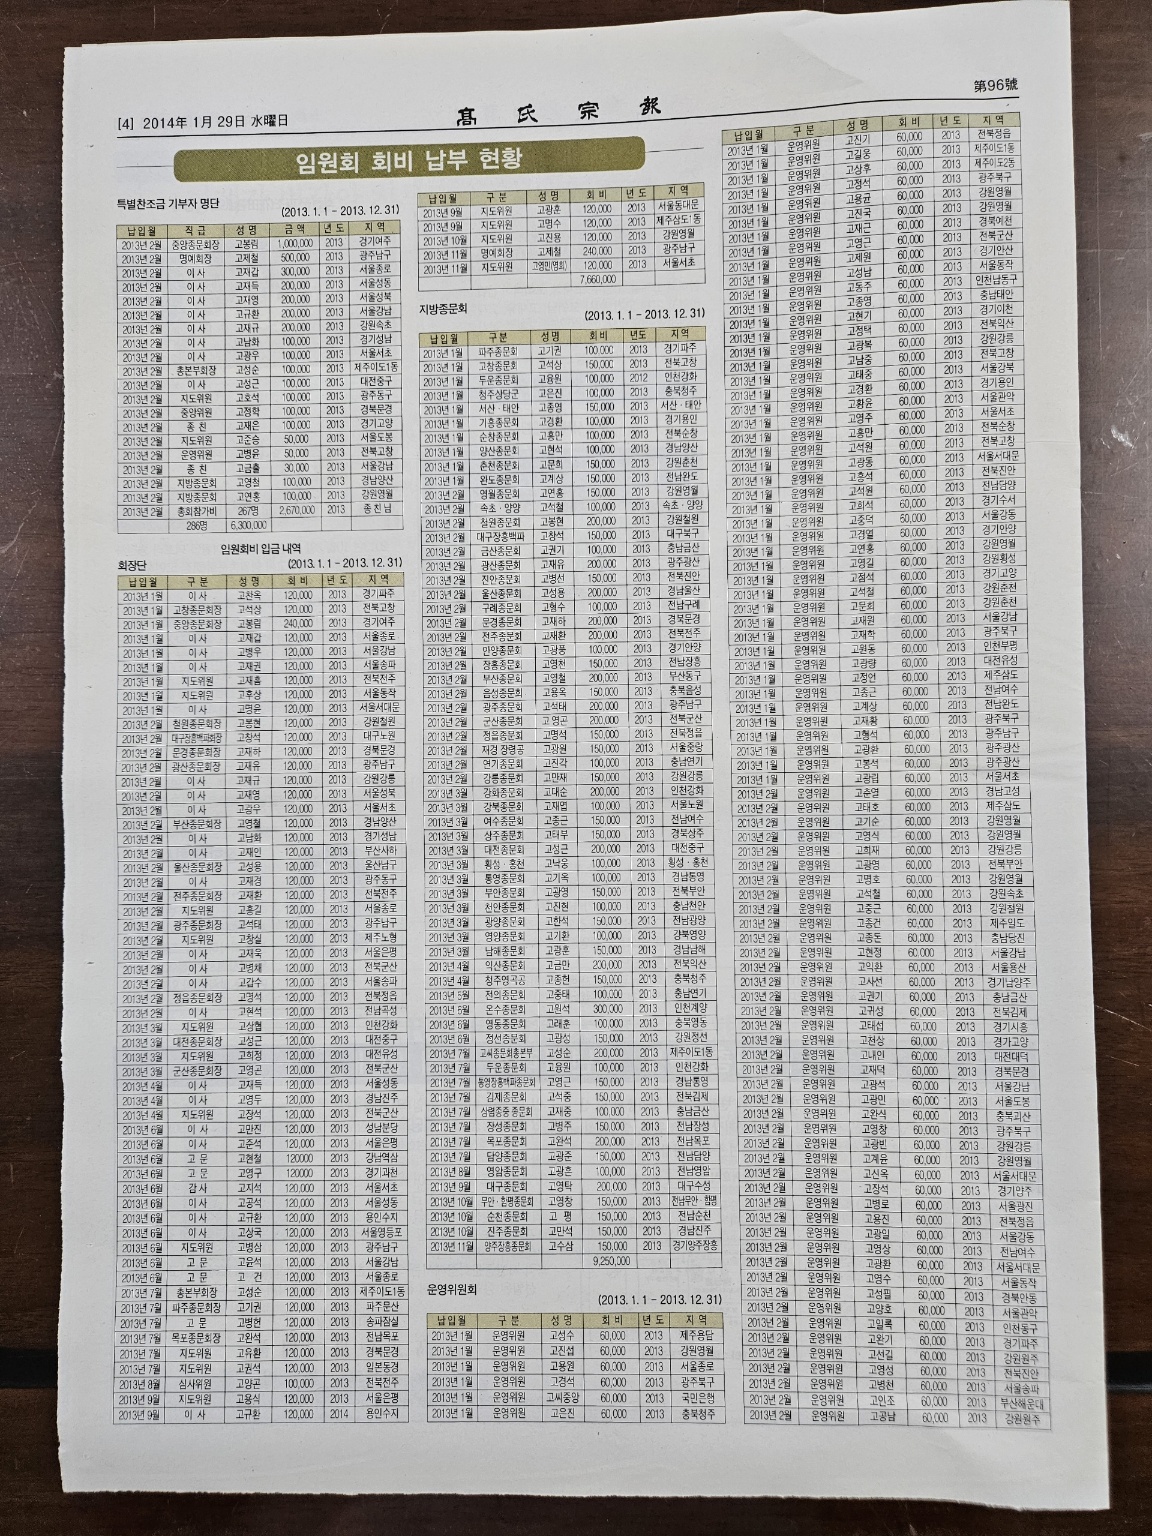 [4] 2014年 1月 29日 水曜日
髙 氏 宗 報
第96號
임원회 회비 납부 현황
특별찬조금 기부자 명단
(2013. 1. 1 - 2013. 12. 31)
납입월 직 급 성 명 금 액 년 도 지 역
2013년 2월 중앙종문회장 고봉림 1,000,000 2013 경기여주
2013년 2월 명예회장 고제철 500,000 2013 광주남구
2013년 2월 이 사 고재갑 300,000 2013 서울종로
2013년 2월 이 사 고재득 200,000 2013 서울성동
2013년 2월 이 사 고재영 200,000 2013 서울성북
2013년 2월 이 사 고규환 200,000 2013 서울강남
2013년 2월 이 사 고재규 200,000 2013 강원속초
2013년 2월 이 사 고남화 100,000 2013 경기성남
2013년 2월 이 사 고광우 100,000 2013 서울서초
2013년 2월 총본부회장 고성순 100,000 2013 제주이도1동
2013년 2월 이 사 고성근 100,000 2013 대전중구
2013년 2월 지도위원 고호석 100,000 2013 광주동구
2013년 2월 중앙위원 고정학 100,000 2013 경북문경
2013년 2월 종 친 고재은 100,000 2013 경기고양
2013년 2월 지도위원 고준승 50,000 2013 서울도봉
2013년 2월 운영위원 고병윤 50,000 2013 전북고창
2013년 2월 종 친 고금출 30,000 2013 서울강남
2013년 2월 지방종문회 고영철 100,000 2013 경남양산
2013년 2월 지방종문회 고연홍 100,000 2013 강원영월
2013년 2월 총회참가비 267명 2,670,000 2013 종친님
286명 6,300,000
임원회비 입금 내역
회장단
(2013. 1. 1 - 2013. 12. 31)
납입월 구 분 성 명 회 비 년 도 지 역
2013년 1월 이 사 고찬옥 120,000 2013 경기파주
2013년 1월 고창종문회장 고석상 120,000 2013 전북고창
2013년 1월 중앙종문회장 고봉림 240,000 2013 경기여주
2013년 1월 이 사 고재갑 120,000 2013 서울종로
2013년 1월 이 사 고병우 120,000 2013 서울강남
2013년 1월 이 사 고재권 120,000 2013 서울송파
2013년 1월 지도위원 고재흠 120,000 2013 전북전주
2013년 1월 지도위원 고후상 120,000 2013 서울동작
2013년 1월 이 사 고명윤 120,000 2013 서울서대문
2013년 2월 철원종문회장 고봉현 120,000 2013 강원철원
2013년 2월 대구장흥백파회장 고창석 120,000 2013 대구노원
2013년 2월 문경종문회장 고재하 120,000 2013 경북문경
2013년 2월 광산종문회장 고재유 120,000 2013 광주남구
2013년 2월 이 사 고재규 120,000 2013 강원강릉
2013년 2월 이 사 고재영 120,000 2013 서울성북
2013년 2월 이 사 고광우 120,000 2013 서울서초
2013년 2월 부산종문회장 고영철 120,000 2013 경남양산
2013년 2월 이 사 고남화 120,000 2013 경기성남
2013년 2월 이 사 고재민 120,000 2013 부산사하
2013년 2월 울산종문회장 고성용 120,000 2013 울산남구
2013년 2월 이 사 고재경 120,000 2013 광주동구
2013년 2월 전주종문회장 고재환 120,000 2013 전북전주
2013년 2월 지도위원 고흥길 120,000 2013 서울종로
2013년 2월 광주종문회장 고석태 120,000 2013 광주남구
2013년 2월 지도위원 고창실 120,000 2013 제주노형
2013년 2월 이 사 고재욱 120,000 2013 서울은평
2013년 2월 이 사 고병채 120,000 2013 전북군산
2013년 2월 이 사 고갑수 120,000 2013 서울송파
2013년 2월 정읍종문회장 고명석 120,000 2013 전북정읍
2013년 2월 이 사 고현석 120,000 2013 전남곡성
2013년 3월 지도위원 고상협 120,000 2013 인천강화
2013년 3월 대전종문회장 고성근 120,000 2013 대전중구
2013년 3월 지도위원 고희정 120,000 2013 대전유성
2013년 3월 군산종문회장 고영곤 120,000 2013 전북군산
2013년 4월 이 사 고재득 120,000 2013 서울성동
2013년 4월 이 사 고영두 120,000 2013 경남진주
2013년 4월 지도위원 고장석 120,000 2013 전북군산
2013년 6월 이 사 고만진 120,000 2013 성남분당
2013년 6월 이 사 고준석 120,000 2013 서울은평
2013년 6월 고 문 고현철 120000 2013 강남역삼
2013년 6월 고 문 고영구 120000 2013 경기과천
2013년 6월 감사 고지석 120,000 2013 서울서초
2013년 6월 이 사 고공석 120,000 2013 서울성동
2013년 6월 이 사 고규환 120,000 2013 용인수지
2013년 6월 이 사 고상국 120,000 2013 서울영등포
2013년 6월 지도위원 고병삼 120,000 2013 광주남구
2013년 6월 고 문 고윤석 120,000 2013 서울강남
2013년 6월 고 문 고 건 120,000 2013 서울종로
2013년 7월 총본부회장 고성순 120,000 2013 제주이도1동
2013년 7월 파주종문회장 고기권 120,000 2013 파주문산
2013년 7월 고 문 고병헌 120,000 2013 송파잠실
2013년 7월 목포종문회장 고완석 120,000 2013 전남목포
2013년 7월 지도위원 고유환 120,000 2013 경북문경
2013년 7월 지도위원 고권석 120,000 2013 일본동경
2013년 8월 심사위원 고양곤 100,000 2013 전북전주
2013년 9월 지도위원 고용식 120,000 2013 서울은평
2013년 9월 이 사 고규환 120,000 2014 용인수지
납입월 구 분 성 명 회 비 년 도 지 역
2013년 9월 지도위원 고광훈 120,000 2013 서울동대문
2013년 9월 지도위원 고명수 120,000 2013 제주삼도1동
2013년 10월 지도위원 고진용 120,000 2013 강원영월
2013년 11월 명예회장 고제철 240,000 2013 광주남구
2013년 11월 지도위원 고영민(영희) 120,000 2013 서울서초
7,660,000
지방종문회
(2013. 1. 1 - 2013. 12. 31)
납입월 구 분 성 명 회 비 년도 지 역
2013년 1월 파주종문회 고기권 100,000 2013 경기파주
2013년 1월 고창종문회 고석상 150,000 2013 전북고창
2013년 1월 두운종문회 고용원 100,000 2012 인천강화
2013년 1월 청주상당군 고은진 100,000 2013 충북청주
2013년 1월 서산·태안 고종영 150,000 2013 서산·태안
2013년 1월 기흥종문회 고경환 100,000 2013 경기용인
2013년 1월 순창종문회 고흥만 100,000 2013 전북순창
2013년 1월 양산종문회 고현석 100,000 2013 경남양산
2013년 1월 춘천종문회 고문희 150,000 2013 강원춘천
2013년 1월 완도종문회 고계상 150,000 2013 전남완도
2013년 2월 영월종문회 고연홍 150,000 2013 강원영월
2013년 2월 속초·양양 고석철 100,000 2013 속초·양양
2013년 2월 철원종문회 고봉현 200,000 2013 강원철원
2013년 2월 대구장흥백파 고창석 150,000 2013 대구북구
2013년 2월 금산종문회 고권기 100,000 2013 충남금산
2013년 2월 광산종문회 고재유 200,000 2013 광주광산
2013년 2월 진안종문회 고병선 150,000 2013 전북진안
2013년 2월 울산종문회 고성용 200,000 2013 경남울산
2013년 2월 구례종문회 고형수 100,000 2013 전남구례
2013년 2월 문경종문회 고재하 200,000 2013 경북문경
2013년 2월 전주종문회 고재환 200,000 2013 전북전주
2013년 2월 안양종문회 고광풍 100,000 2013 경기안양
2013년 2월 장흥종문회 고영천 150,000 2013 전남장흥
2013년 2월 부산종문회 고영철 200,000 2013 부산동구
2013년 2월 음성종문회 고용옥 150,000 2013 충북음성
2013년 2월 광주종문회 고석태 200,000 2013 광주남구
2013년 2월 군산종문회 고영곤 200,000 2013 전북군산
2013년 2월 정읍종문회 고명석 150,000 2013 전북정읍
2013년 2월 재경 장령공 고광원 150,000 2013 서울중랑
2013년 2월 연기종문회 고진각 100,000 2013 충남연기
2013년 2월 강릉종문회 고만재 150,000 2013 강원강릉
2013년 3월 강화종문회 고대순 200,000 2013 인천강화
2013년 3월 강북종문회 고재엽 100,000 2013 서울노원
2013년 3월 여수종문회 고종근 100,000 2013 전남여수
2013년 3월 상주종문회 고태부 150,000 2013 경북상주
2013년 3월 대전종문회 고성근 200,000 2013 대전중구
2013년 3월 횡성·홍천 고낙웅 100,000 2013 횡성·홍천
2013년 3월 통영종문회 고기옥 100,000 2013 경남통영
2013년 3월 부안종문회 고광영 150,000 2013 전북부안
2013년 3월 천안종문회 고진현 100,000 2013 충남천안
2013년 3월 광양종문회 고한석 150,000 2013 전남광양
2013년 3월 영양종문회 고기환 100,000 2013 경북영양
2013년 3월 남해종문회 고광훈 150,000 2013 경남남해
2013년 4월 익산종문회 고금만 200,000 2013 전북익산
2013년 4월 청주영곡공 고종현 150,000 2013 충북청주
2013년 5월 전의종문회 고중태 100,000 2013 충남연기
2013년 5월 온수종문회 고원석 300,000 2013 인천계양
2013년 6월 영동종문회 고래훈 100,000 2013 충북영동
2013년 6월 정선종문회 고광성 150,000 2013 강원정선
2013년 7월 고씨종문회총본부 고성순 200,000 2013 제주이도1동
2013년 7월 두운종문회 고용원 100,000 2013 인천강화
2013년 7월 통영장흥백파종문회 고영근 150,000 2013 경남통영
2013년 7월 김제종문회 고석중 150,000 2013 전북김제
2013년 7월 삼렴종중 종문회 고재중 100,000 2013 충남금산
2013년 7월 장성종문회 고병주 150,000 2013 전남장성
2013년 7월 목포종문회 고완석 200,000 2013 전남목포
2013년 7월 담양종문회 고광준 150,000 2013 전남담양
2013년 8월 영암종문회 고광흔 100,000 2013 전남영암
2013년 9월 대구종문회 고영탁 200,000 2013 대구수성
2013년 10월 무안·함평종문회 고영창 150,000 2013 전남무안·함평
2013년 10월 순천종문회 고 평 150,000 2013 전남순천
2013년 10월 진주종문회 고만석 150,000 2013 경남진주
2013년 11월 양주장흥종문회 고수삼 150,000 2013 경기양주장흥
9,250,000
운영위원회
(2013. 1. 1 - 2013. 12. 31)
납입월 구 분 성 명 회 비 년 도 지 역
2013년 1월 운영위원 고성수 60,000 2013 제주용담
2013년 1월 운영위원 고진섭 60,000 2013 강원영월
2013년 1월 운영위원 고용원 60,000 2013 서울종로
2013년 1월 운영위원 고경석 60,000 2013 광주북구
2013년 1월 운영위원 고씨중앙 60,000 2013 국민은행
2013년 1월 운영위원 고은진 60,000 2013 충북청주
납입월 구 분 성 명 회 비 년 도 지 역
2013년 1월 운영위원 고진기 60,000 2013 전북정읍
2013년 1월 운영위원 고길웅 60,000 2013 제주이도1동
2013년 1월 운영위원 고상후 60,000 2013 제주이도2동
2013년 1월 운영위원 고정석 60,000 2013 광주북구
2013년 1월 운영위원 고용규 60,000 2013 강원영월
2013년 1월 운영위원 고진국 60,000 2013 강원영월
2013년 1월 운영위원 고재근 60,000 2013 경북예천
2013년 1월 운영위원 고영근 60,000 2013 전북군산
2013년 1월 운영위원 고제원 60,000 2013 경기안산
2013년 1월 운영위원 고성남 60,000 2013 서울동작
2013년 1월 운영위원 고동주 60,000 2013 인천남동구
2013년 1월 운영위원 고종영 60,000 2013 충남태안
2013년 1월 운영위원 고현기 60,000 2013 경기이천
2013년 1월 운영위원 고정택 60,000 2013 전북익산
2013년 1월 운영위원 고광복 60,000 2013 강원강릉
2013년 1월 운영위원 고남중 60,000 2013 전북고창
2013년 1월 운영위원 고태중 60,000 2013 서울강북
2013년 1월 운영위원 고경환 60,000 2013 경기용인
2013년 1월 운영위원 고황윤 60,000 2013 서울관악
2013년 1월 운영위원 고영주 60,000 2013 서울서초
2013년 1월 운영위원 고흥만 60,000 2013 전북순창
2013년 1월 운영위원 고석원 60,000 2013 전북고창
2013년 1월 운영위원 고광동 60,000 2013 서울서대문
2013년 1월 운영위원 고흥석 60,000 2013 전북진안
2013년 1월 운영위원 고석원 60,000 2013 전남담양
2013년 1월 운영위원 고희석 60,000 2013 경기수서
2013년 1월 운영위원 고중덕 60,000 2013 서울강동
2013년 1월 운영위원 고경열 50,000 2013 경기안양
2013년 1월 운영위원 고연홍 60,000 2013 강원영월
2013년 1월 운영위원 고영길 60,000 2013 강원횡성
2013년 1월 운영위원 고점석 60,000 2013 경기고양
2013년 1월 운영위원 고석철 60,000 2013 강원춘천
2013년 1월 운영위원 고문희 60,000 2013 강원춘천
2013년 1월 운영위원 고재원 60,000 2013 서울강남
2013년 1월 운영위원 고재학 60,000 2013 광주북구
2013년 1월 운영위원 고원동 60,000 2013 인천부평
2013년 1월 운영위원 고광량 60,000 2013 대전유성
2013년 1월 운영위원 고정언 60,000 2013 제주삼도
2013년 1월 운영위원 고종근 60,000 2013 전남여수
2013년 1월 운영위원 고계상 60,000 2013 전남완도
2013년 1월 운영위원 고재황 60,000 2013 광주북구
2013년 1월 운영위원 고형석 60,000 2013 광주남구
2013년 1월 운영위원 고광환 60,000 2013 광주광산
2013년 1월 운영위원 고봉석 60,000 2013 광주광산
2013년 1월 운영위원 고광림 60,000 2013 서울서초
2013년 2월 운영위원 고손열 60,000 2013 경남고성
2013년 2월 운영위원 고태호 60,000 2013 제주삼도
2013년 2월 운영위원 고기순 60,000 2013 강원영월
2013년 2월 운영위원 고영식 60,000 2013 강원영월
2013년 2월 운영위원 고희재 60,000 2013 강원강릉
2013년 2월 운영위원 고광영 60,000 2013 전북부안
2013년 2월 운영위원 고명호 60,000 2013 강원영월
2013년 2월 운영위원 고석철 60,000 2013 강원속초
2013년 2월 운영위원 고중근 60,000 2013 강원철원
2013년 2월 운영위원 고종건 60,000 2013 제주일도
2013년 2월 운영위원 고종돈 60,000 2013 충남당진
2013년 2월 운영위원 고현정 60,000 2013 서울강남
2013년 2월 운영위원 고익환 60,000 2013 서울용산
2013년 2월 운영위원 고사선 60,000 2013 경기남양주
2013년 2월 운영위원 고권기 60,000 2013 충남금산
2013년 2월 운영위원 고귀성 60,000 2013 전북김제
2013년 2월 운영위원 고태섭 60,000 2013 경기시흥
2013년 2월 운영위원 고천상 60,000 2013 경기고양
2013년 2월 운영위원 고내인 60,000 2013 대전대덕
2013년 2월 운영위원 고재덕 60,000 2013 경북문경
2013년 2월 운영위원 고광석 60,000 2013 서울강남
2013년 2월 운영위원 고광민 60,000 2013 서울도봉
2013년 2월 운영위원 고완식 60,000 2013 충북괴산
2013년 2월 운영위원 고영창 60,000 2013 광주북구
2013년 2월 운영위원 고광빈 60,000 2013 강원강릉
2013년 2월 운영위원 고계윤 60,000 2013 강원영월
2013년 2월 운영위원 고진옥 60,000 2013 서울서대문
2013년 2월 운영위원 고장석 60,000 2013 경기양주
2013년 2월 운영위원 고병로 60,000 2013 서울광진
2013년 2월 운영위원 고용진 60,000 2013 전북정읍
2013년 2월 운영위원 고광일 60,000 2013 서울강동
2013년 2월 운영위원 고영상 60,000 2013 전남여수
2013년 2월 운영위원 고광환 60,000 2013 서울서대문
2013년 2월 운영위원 고영수 60,000 2013 서울동작
2013년 2월 운영위원 고성필 60,000 2013 경북안동
2013년 2월 운영위원 고양호 60,000 2013 서울관악
2013년 2월 운영위원 고일록 60,000 2013 인천동구
2013년 2월 운영위원 고완기 60,000 2013 경기파주
2013년 2월 운영위원 고선길 60,000 2013 강원원주
2013년 2월 운영위원 고영성 60,000 2013 전북진안
2013년 2월 운영위원 고병천 60,000 2013 서울송파
2013년 2월 운영위원 고인조 60,000 2013 부산해운대
2013년 2월 운영위원 고공남 60,000 2013 강원원주